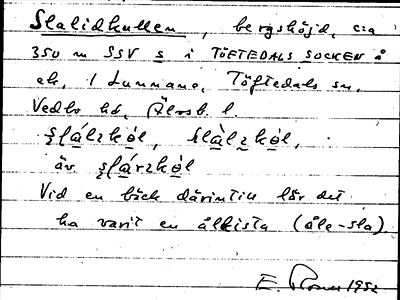 Slalidkullen, bergshöjd, c:a
350 m SSV s i TÖFTEDALS SOCKEN å
ek. 1 Lunnane, Töftedals sn,
Vedbo hd, Älvsb. l.
äv
Vid en bäck därintill lär det
ha varit en ålkista (åle-sla)
E. 1952